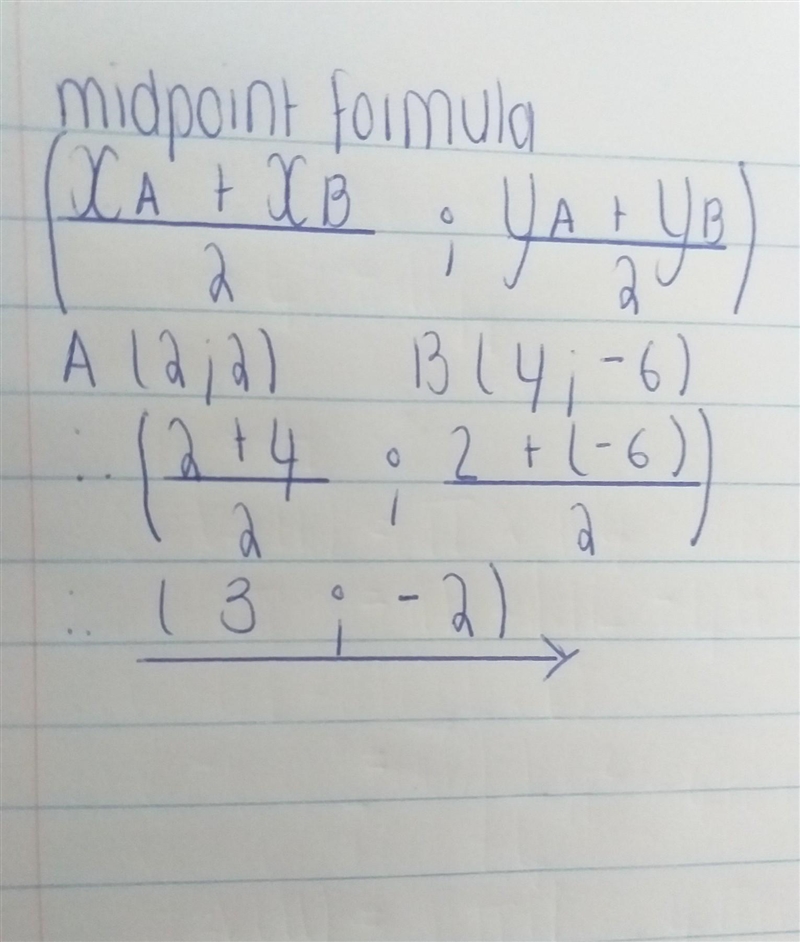 midpoint formula
(xA + xB / 2 ; yA + yB / 2)
A (2;2) B (4; -6)
∴ (2 + 4 / 2 ; 2 + (-6) / 2)
∴ (3 ; -2)